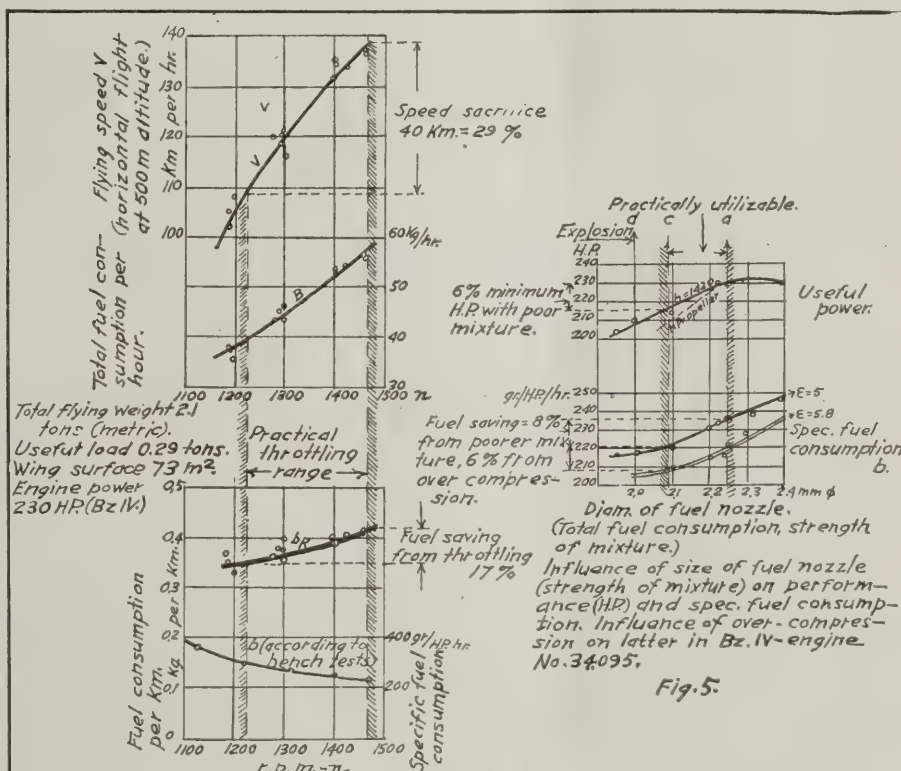 Flying speed V
(horizontal flight
at 500m altitude.)
Km per hr.
140
130
120
110
100
V
V
Speed sacrifice
40 Km. = 29 %
Total fuel con-
sumption per
hour.
60 Kg/hr.
50
40
30
B
1100 1200 1300 1400 1500 n
Total flying weight 2.1
tons (metric).
Useful load 0.29 tons.
Wing surface 73 m².
Engine power
230 HP. (Bz IV.)
Practical
throttling
range
Fuel consumption
per Km.
Kg. per Km.
0,5
0,4
0,3
0,2
0,1
0
Fuel saving
from throttling
17 %
b (according to
bench tests)
400 gr/HP. hr.
200
Specific fuel
consumption
1100 1200 1300 1400 1500
r.p.m. = n
Practically utilizable.
d c a
Explosion
H.P.
240
230
220
210
200
6% minimum
H.P. with poor
mixture.
n=1420
Propeller
Useful
power.
gr/HP./hr.
250
240
230
220
210
200
Fuel saving = 8%
from poorer mix
ture, 6% from
over compres-
sion.
E=5
E=5.8
Spec. fuel
consumption
b.
2.0 2.1 2.2 2.3 2.4 mm φ
Diam. of fuel nozzle.
(Total fuel consumption, strength
of mixture.)
Influence of size of fuel nozzle
(strength of mixture) on perform-
ance (H.P.) and spec. fuel consump-
tion. Influence of over-compres-
sion on latter in Bz. IV-engine
No. 34095.
Fig. 5.